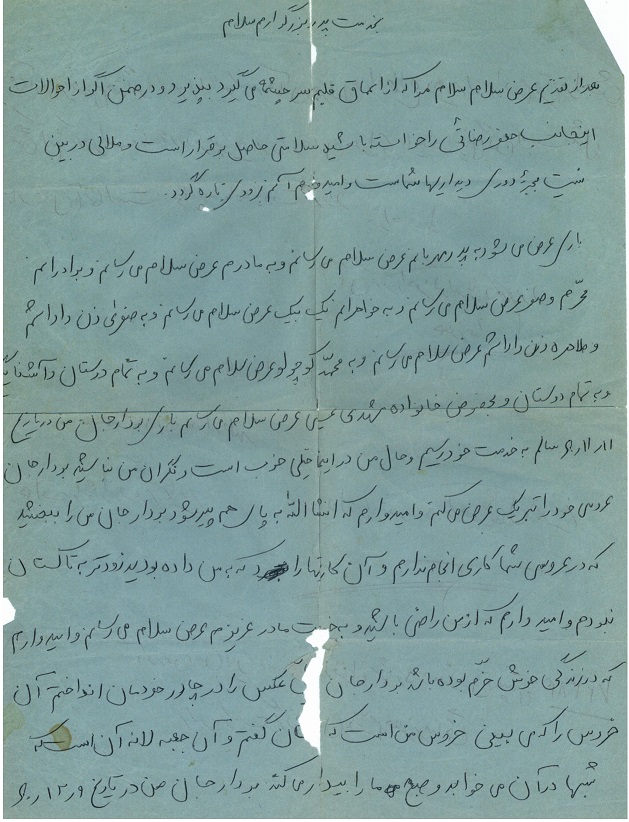 بخدمت پدر بزرگوارم سلام
بعد از تقدیم عرض سلام سلام مرا که از اعماق قلبم سرچشمه می گیرد بپذیرد و در ضمن اگر از احوالات
اینجانب جعفر رضائی را خواسته باشید سلامتی حاصل برقرار است و ملالی در بین
نیست بجز دوری دیدارها شماست و امیدوارم آنهم بزودی تازه گردد.
باری عرض می شود به پدر مهربانم عرض سلام می رسانم و به مادرم عرض سلام می رسانم و برادرانم
محرم و صفر عرض سلام می رسانم و به خواهرانم یک بیک عرض سلام می رسانم و به صغرای زن داداشم
و طاهره زن داداشم عرض سلام می رسانم و به محمد کوچولو عرض سلام می رسانم و به تمام دوستان و آشنایان
و به تمام دوستان و بخصوص خانواده مشهدی عیسی عرض سلام می رسانم باری برادر جان من در تاریخ
سالم به خدمت خود رسیدم و حال من در اینجا خیلی خوب است و نگران من نباشید برادر جان
عروسی خود را تبریک عرض می کنم و امیدوارم که انشااله به پای هم پیر شوید برادر جان من را ببخشید
که در عروسی شما کاری انجام ندادم و آن کارتها را که به من داده بودید زودتر به تاکستان
نبردم و امید دارم که از من راضی باشید و به خدمت مادر عزیزم عرض سلام می رسانم و امید دارم
که در زندگی خوش خرم بوده باشد برادر جان عکس را در چادر خودمان انداختم آن
خروس را که می بینی خروس من است که گفتم و آن جعبه لانه آن است که
شبها در آن می خوابد و صبح ما را بیدار می کند برادر جان من در تاریخ